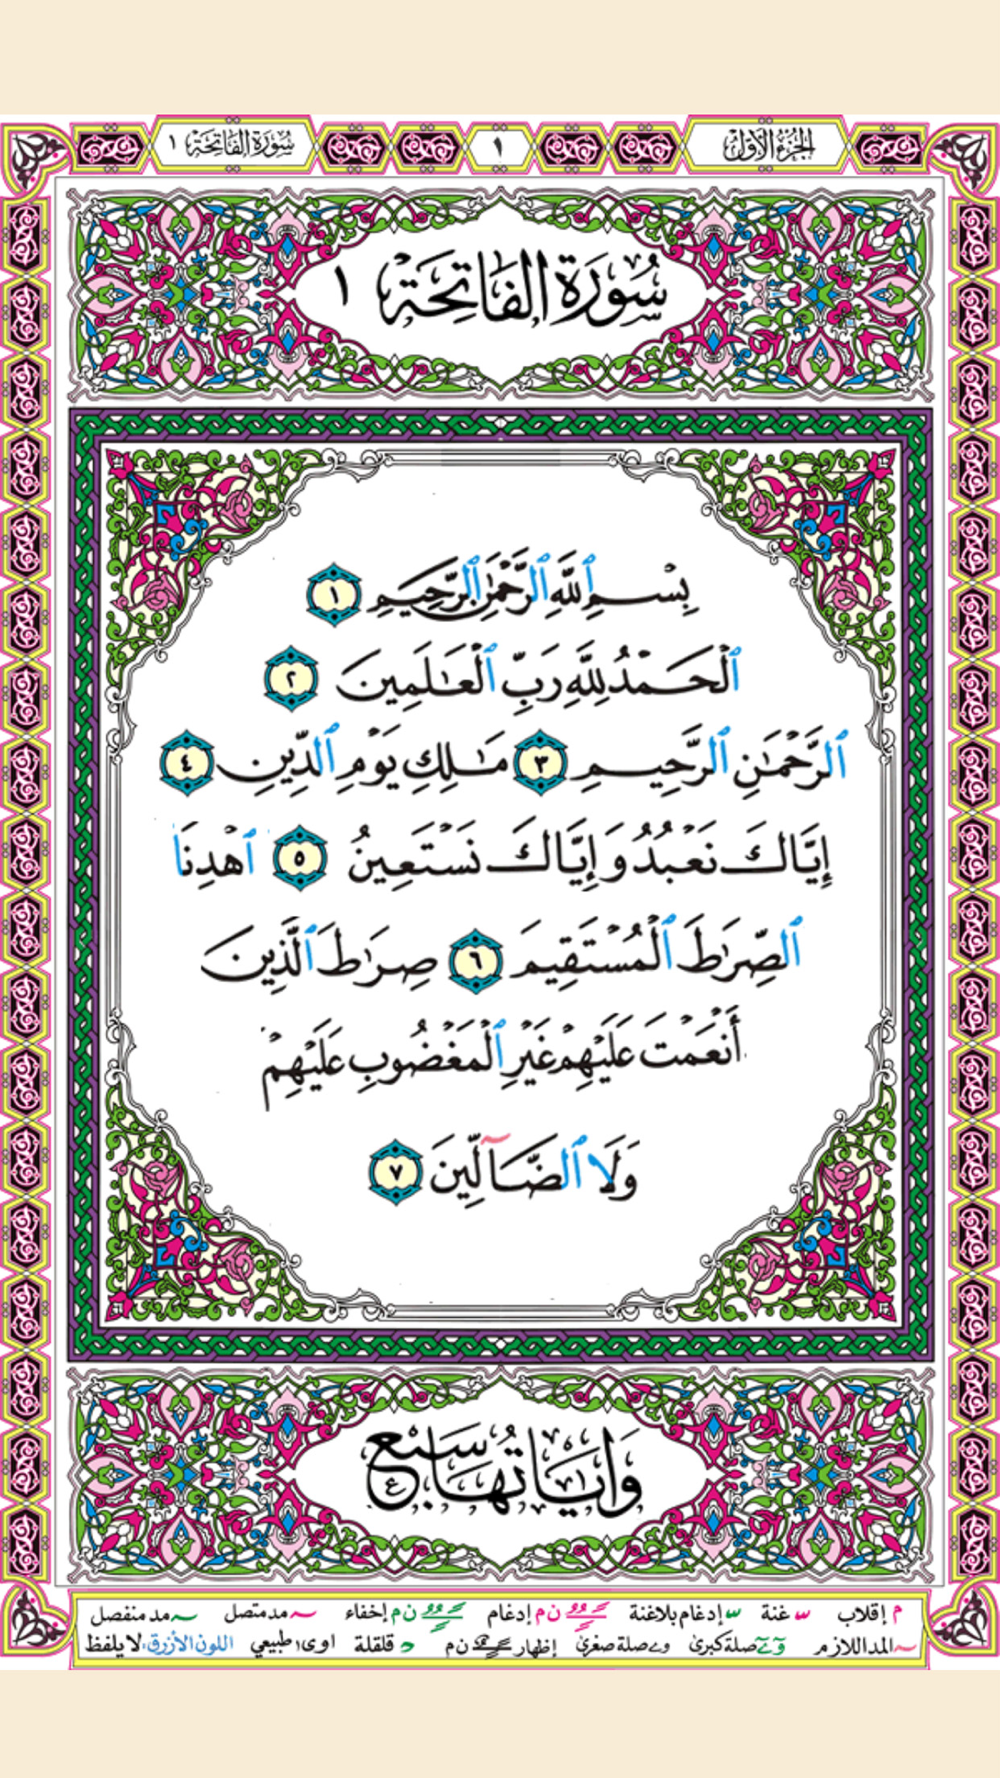 الجزء الأول
١
سُورَة الفَاتِحَة ١
سُورَة الفَاتِحَة ١
بِسْمِ ٱللَّهِ ٱلرَّحْمَٰنِ ٱلرَّحِيمِ ١
ٱلْحَمْدُ لِلَّهِ رَبِّ ٱلْعَٰلَمِينَ ٢
ٱلرَّحْمَٰنِ ٱلرَّحِيمِ ٣ مَٰلِكِ يَوْمِ ٱلدِّينِ ٤
إِيَّاكَ نَعْبُدُ وَإِيَّاكَ نَسْتَعِينُ ٥ ٱهْدِنَا
ٱلصِّرَٰطَ ٱلْمُسْتَقِيمَ ٦ صِرَٰطَ ٱلَّذِينَ
أَنْعَمْتَ عَلَيْهِمْ غَيْرِ ٱلْمَغْضُوبِ عَلَيْهِمْ
وَلَا ٱلضَّآلِّينَ ٧
وَايَاتُهَا سَبْع
م إقلاب غنة إدغام بلاغنة ن م إدغام ن م إخفاء مد متصل مد منفصل
المد اللازم صلة كبرى صلة صغرى إظهار ن م قلقلة ا و ى طبيعي اللون الأزرق: لا يلفظ